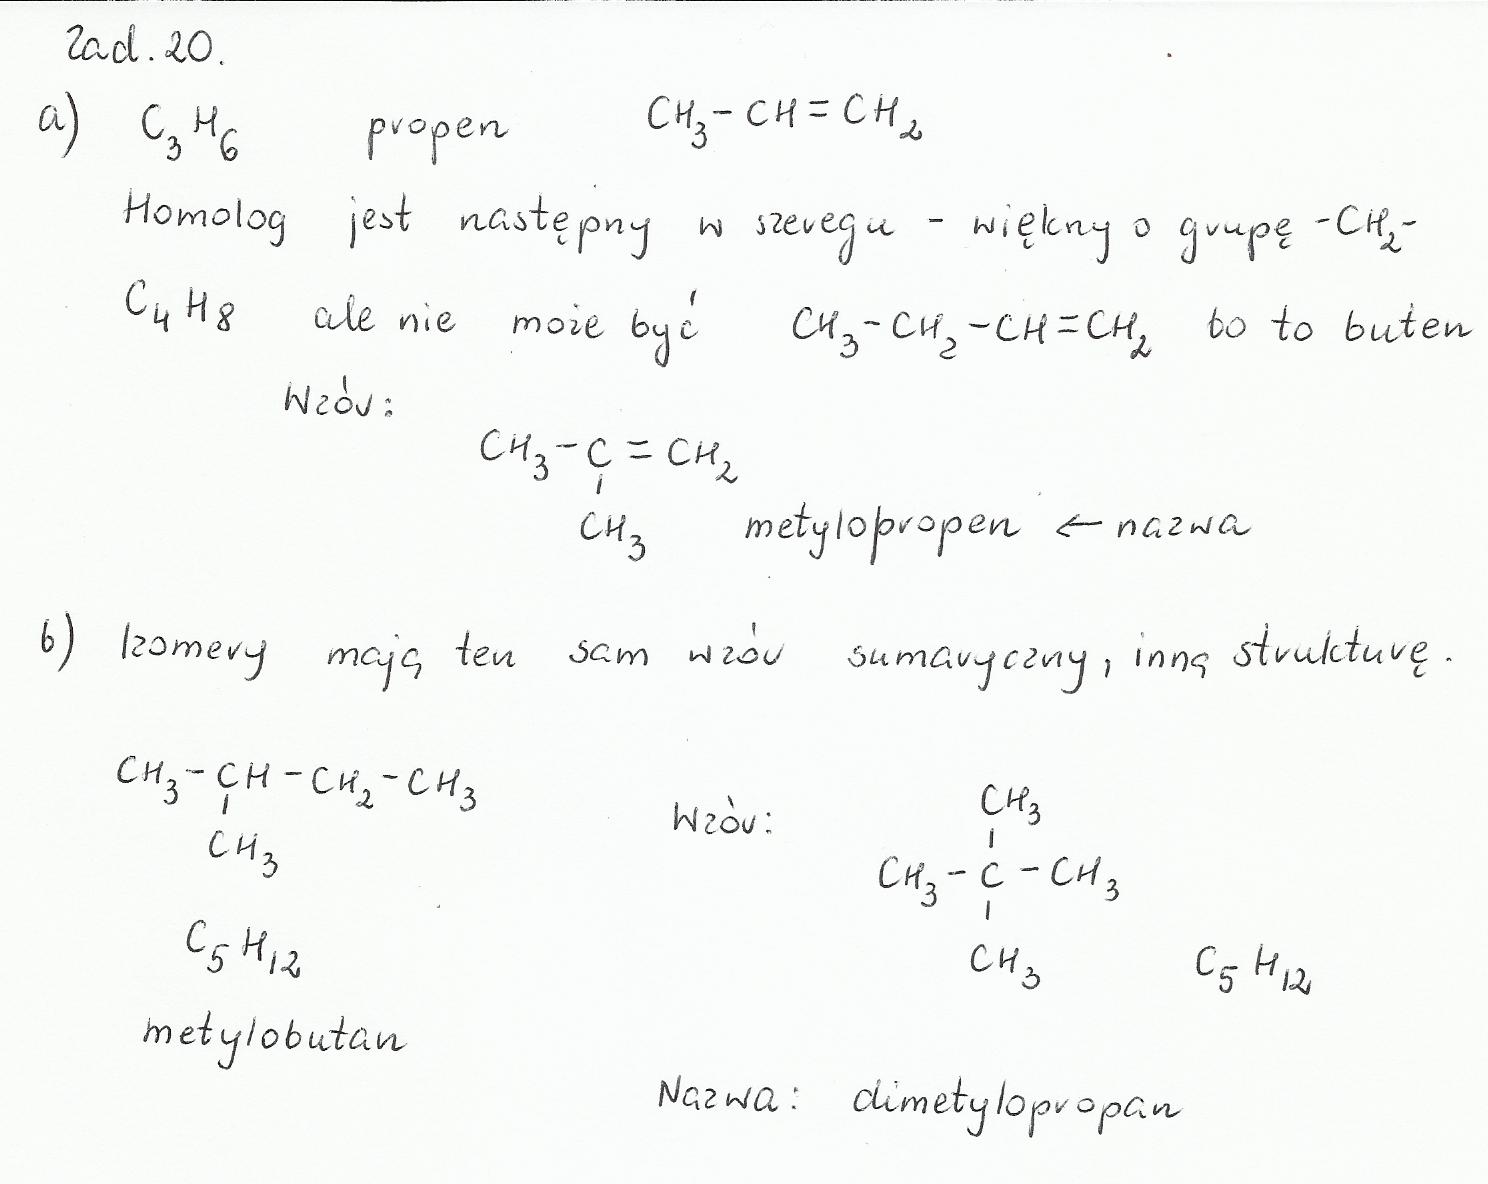 Zad. 20.
a) C₃H₆ propen CH₃-CH=CH₂
Homolog jest następny w szeregu - większy o grupę -CH₂-
C₄H₈ ale nie może być CH₃-CH₂-CH=CH₂ bo to buten
Wzór:
CH₃-C=CH₂
CH₃ metylopropen ← nazwa
b) Izomery mają ten sam wzór sumaryczny, inną strukturę.
CH₃-CH-CH₂-CH₃
CH₃
C₅H₁₂
metylobutan
Wzór:
CH₃
CH₃-C-CH₃
CH₃
C₅H₁₂
Nazwa: dimetylopropan